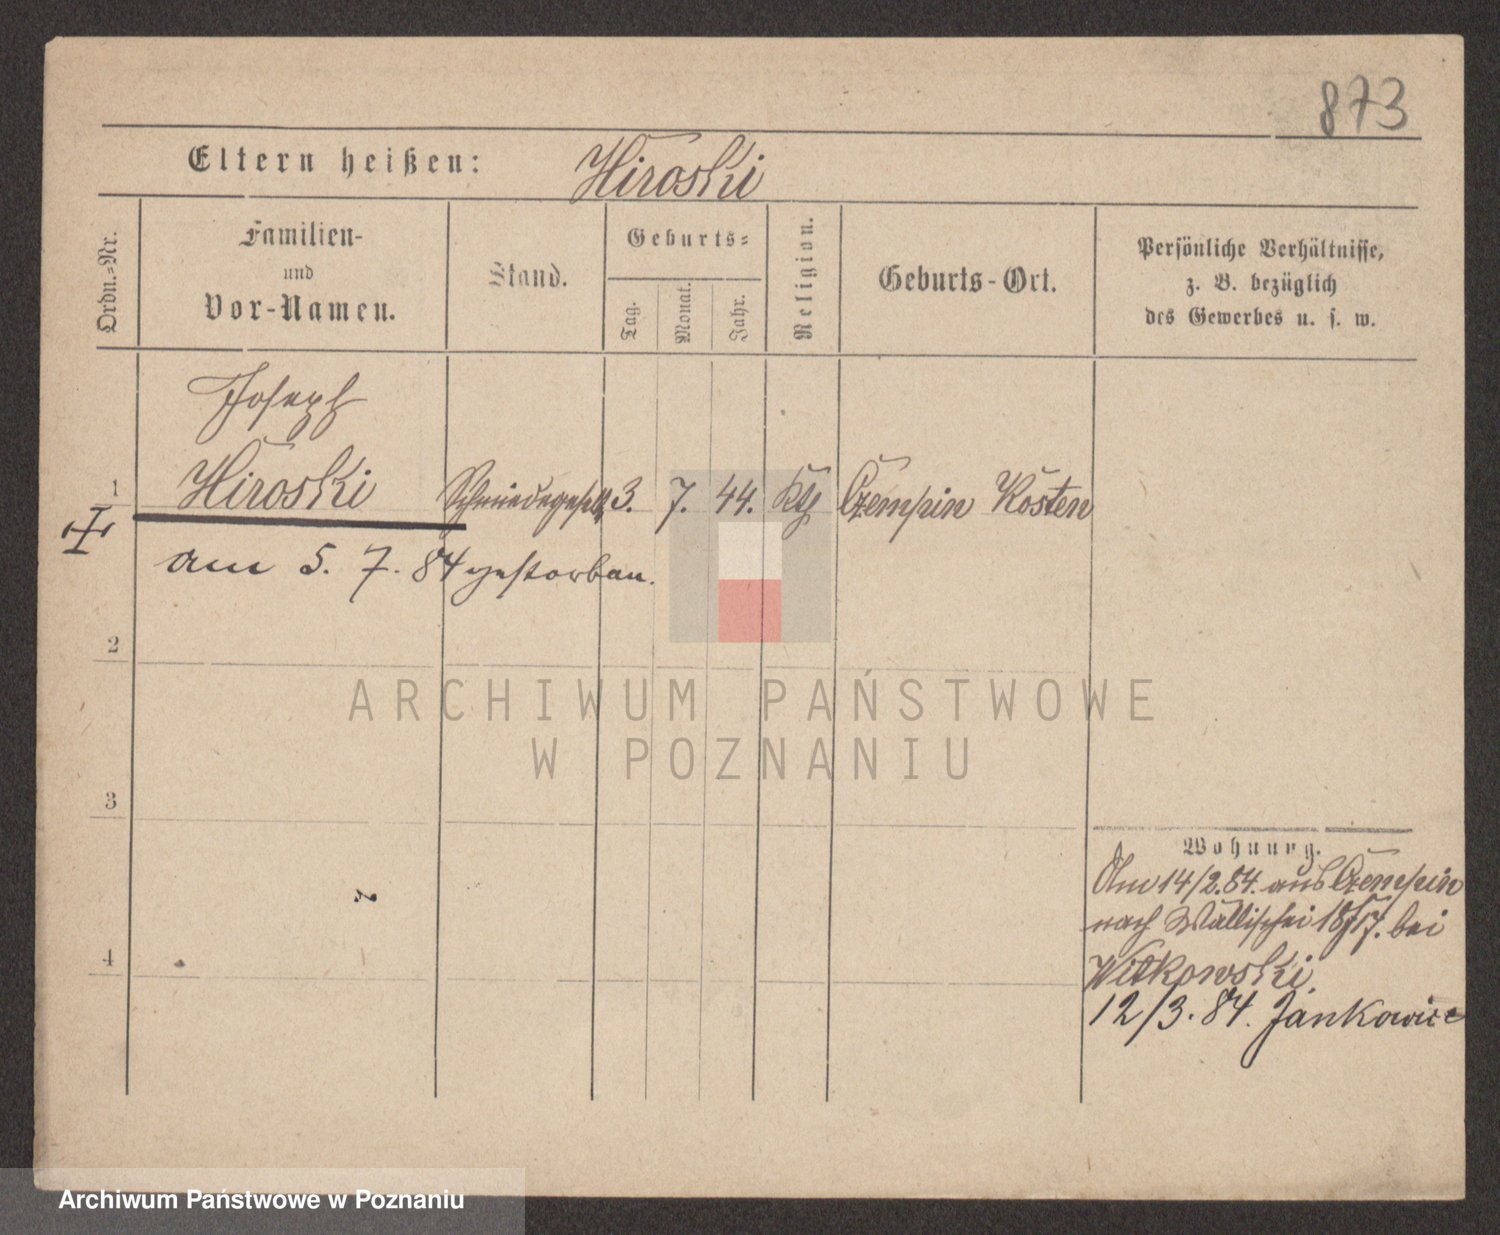 873
Eltern heißen: Hiroski
Ordn.-Nr.
Familien-
und
Vor-Namen.
Stand.
Geburts-
Tag.
Monat.
Jahr.
Religion.
Geburts-Ort.
Persönliche Verhältnisse,
z. B. bezüglich
des Gewerbes u. s. w.
Joseph
1 Hiroski Schmiedegesell 3. 7. 44. Kth Czempin Kosten
am 5. 7. 84 gestorben.
2
3
4
Wohnung.
Am 14/2. 84. aus Czempin
nach Wallischei bei
Witkowski.
12/3. 84. Jankowice
ARCHIWUM PAŃSTWOWE
W POZNANIU
Archiwum Państwowe w Poznaniu